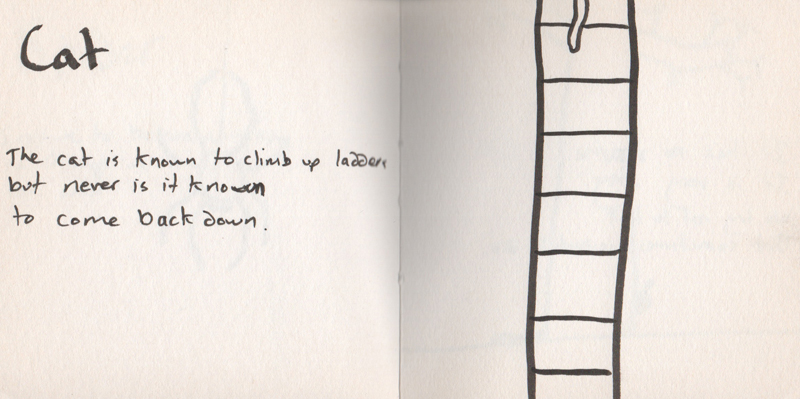 Cat
The cat is known to climb up ladders
but never is it known
to come back down.